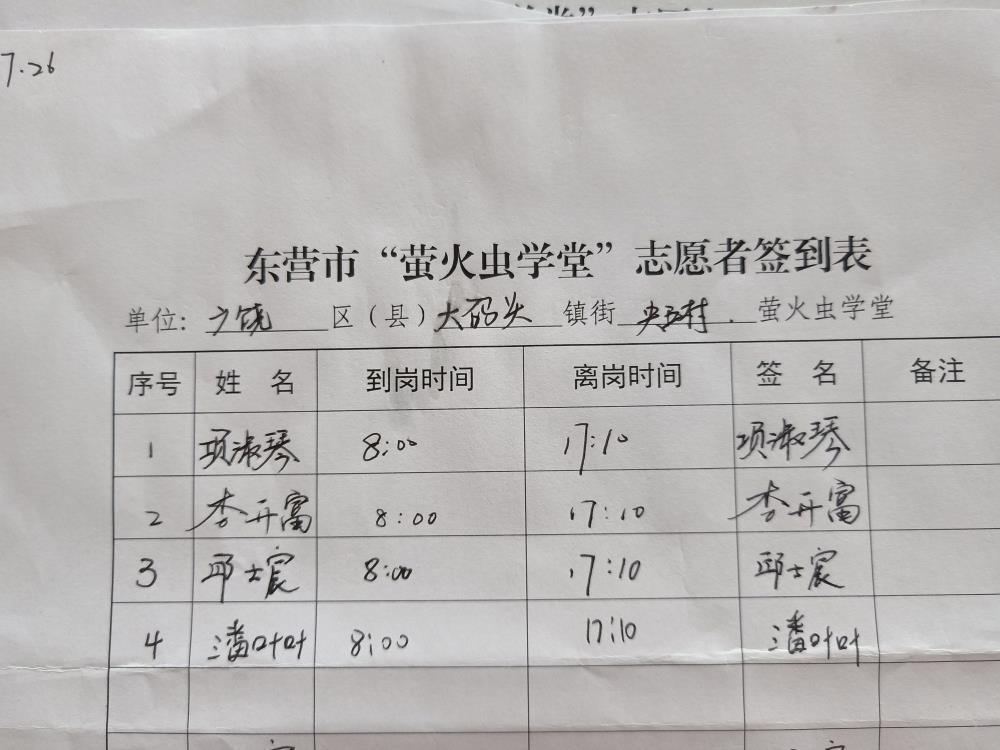 7.26
东营市“萤火虫学堂”志愿者签到表
单位：广饶 区（县）大码头 镇街 央五村 萤火虫学堂
序号 姓名 到岗时间 离岗时间 签名 备注
1 项淑琴 8:00 17:10 项淑琴
2 李开富 8:00 17:10 李开富
3 邱士宸 8:00 17:10 邱士宸
4 潘叶叶 8:00 17:10 潘叶叶